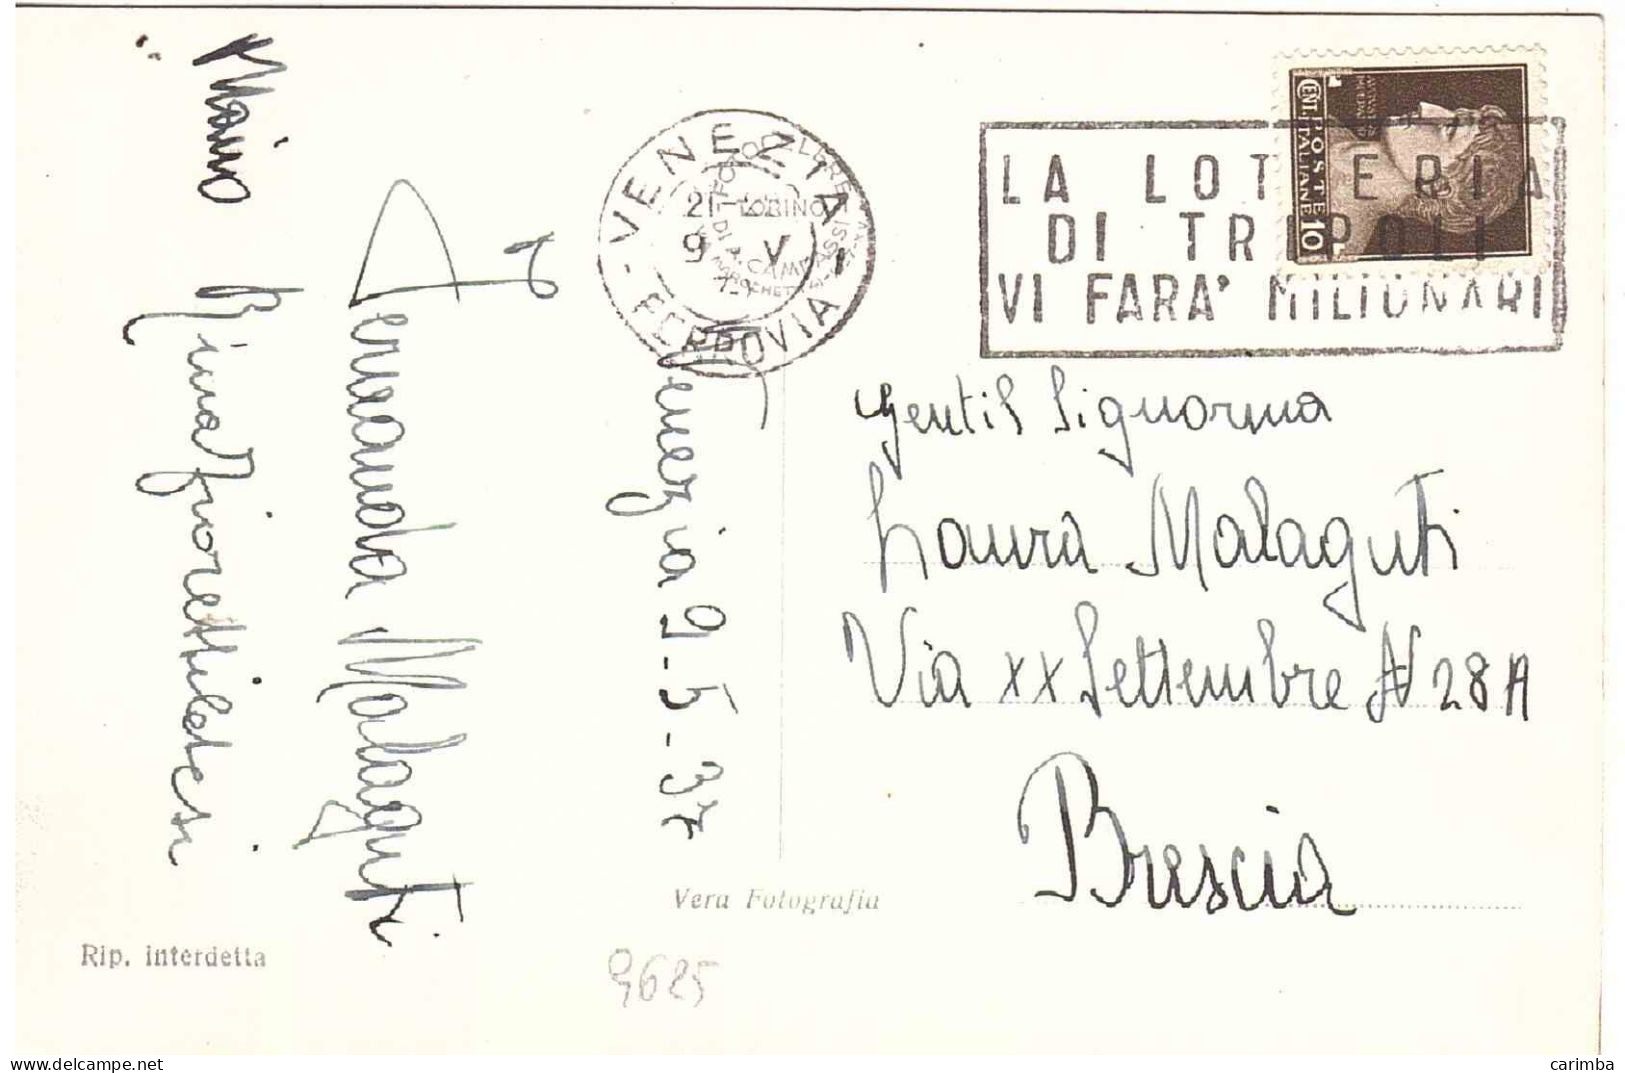 Nino
Rina Fiorettildesi
Fernanda Malaguti
Venezia 9-5-37
VENEZIA
FERROVIA
21
9 V
TORINO
LA LOTTERIA
DI TRIPOLI
VI FARA' MILIONARI
CENT. 10
POSTE ITALIANE
Gentil Signorina
Laura Malaguti
Via XX Settembre N 28A
Brescia
Vera Fotografia
Rip. interdetta
9625
carimba